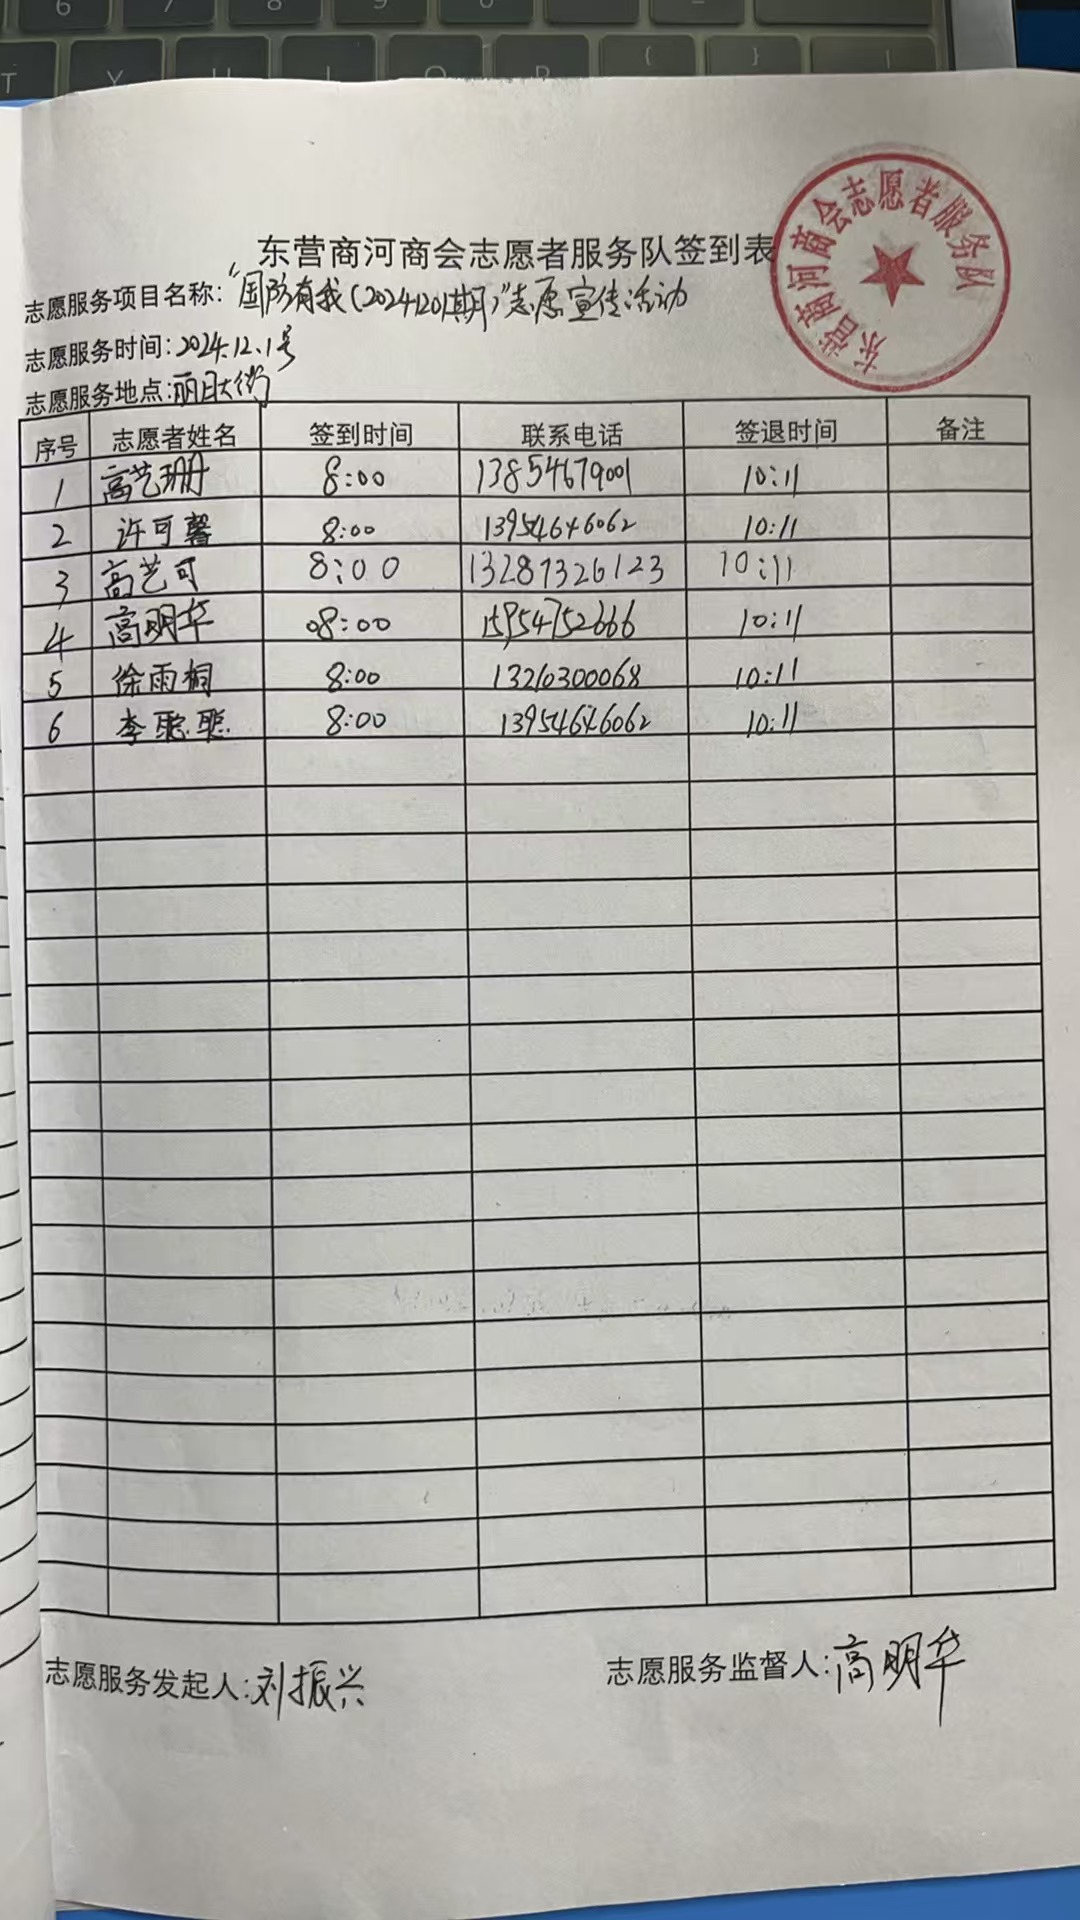 东营商河商会志愿者服务队
东营商河商会志愿者服务队签到表
志愿服务项目名称:“国防有我(20241201期)”志愿宣传活动
志愿服务时间:2024.12.1号
志愿服务地点:丽日大街
序号 志愿者姓名 签到时间 联系电话 签退时间 备注
1 高艺珊 8:00 13854679001 10:11
2 许可馨 8:00 13954646062 10:11
3 高艺可 8:00 13287326123 10:11
4 高明华 08:00 15954752666 10:11
5 徐雨桐 8:00 13210300068 10:11
6 李聪聪 8:00 13954646062 10:11
志愿服务发起人:刘振兴 志愿服务监督人:高明华